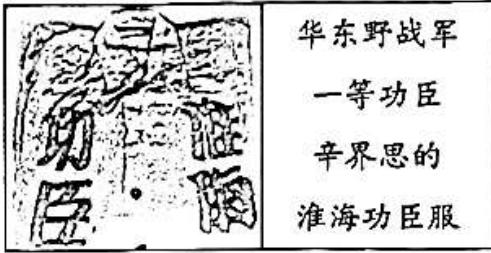 功臣
淮海
华东野战军
一等功臣
辛界思的
淮海功臣服